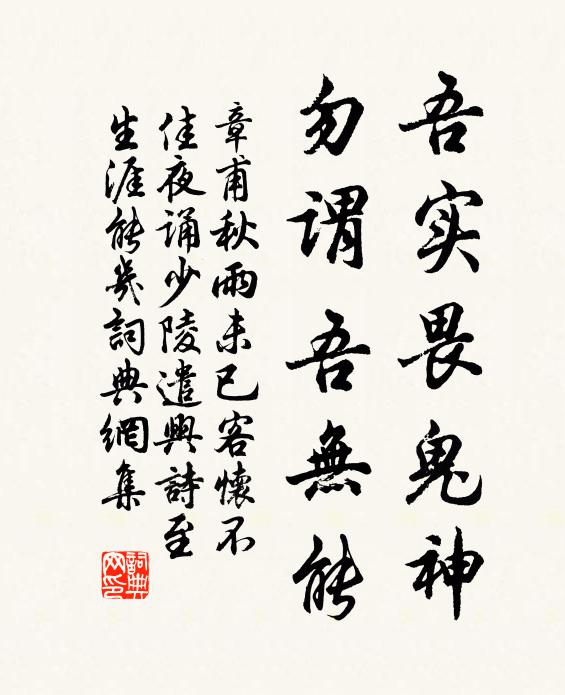 吾实畏鬼神
勿谓吾無能
章甫秋雨未已客懷不
佳夜诵少陵遣興詩至
生涯能幾詞典網集
詞典
网印